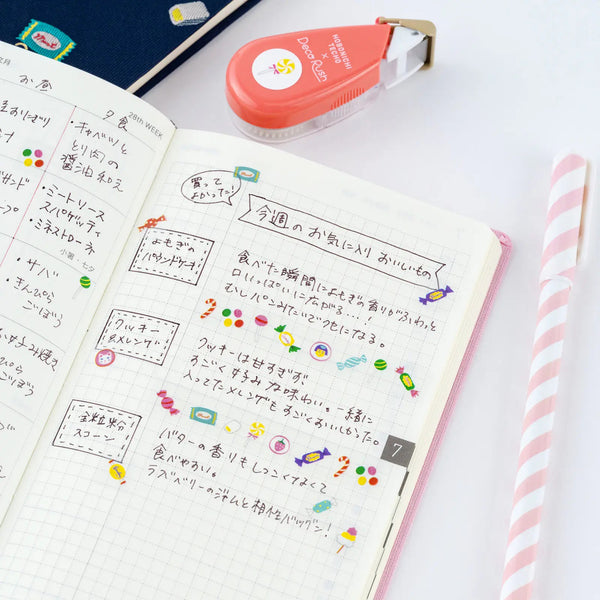 HOBONICHI
TECHO
×
Deco Rush
お昼
28th WEEK
夕食
・キャベツと
とり肉の
醤油和え
・ミートソース
スパゲッティ
・ミネストローネ
小暑・七夕
・サバ
・きんぴら
ごぼう
買って
よかった!
今週のお気に入りおいしいもの
よもぎの
パウンドケーキ
食べた瞬間によもぎの香りがふわっと
口いっぱいに広がる...!
むしパンみたいでクセになる。
クッキー
&メレンゲ
クッキーは甘すぎず、
すごく好みな味わい。一緒に
入ってたメレンゲもすごくおいしかった。
7
全粒粉
スコーン
バターの香りもしつこくなくて
食べやすい。
ラズベリーのジャムと相性バッグン!